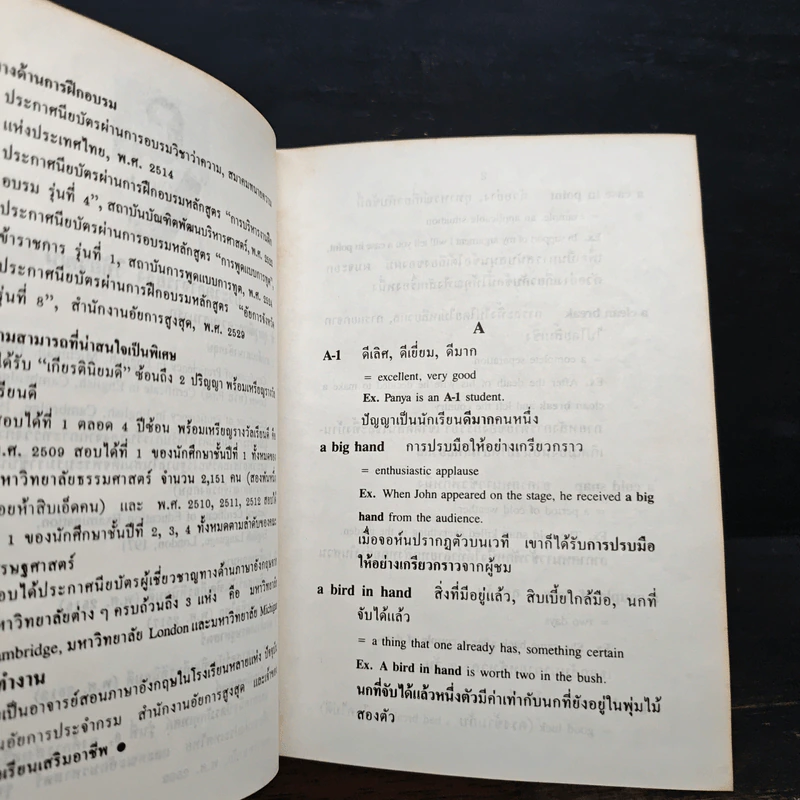 างด้านการฝึกอบรม
ประกาศนียบัตรผ่านการอบรมวิชาว่าความ, สมาคมทนายความ
แห่งประเทศไทย, พ.ศ. 2514
ประกาศนียบัตรผ่านการฝึกอบรมหลักสูตร “การบริหารงานฝึก
อบรม รุ่นที่ 4”, สถาบันบัณฑิตพัฒนบริหารศาสตร์, พ.ศ.
ประกาศนียบัตรผ่านการอบรมหลักสูตร “การพูดแบบการทูต”,
ข้าราชการ รุ่นที่ 1, สถาบันการพูดแบบการทูต, พ.ศ.
ประกาศนียบัตรผ่านการฝึกอบรมหลักสูตร “อัยการจังหวัด
รุ่นที่ 8”, สำนักงานอัยการสูงสุด, พ.ศ. 2529
ามสามารถที่น่าสนใจเป็นพิเศษ
ได้รับ “เกียรตินิยมดี” ซ้อนถึง 2 ปริญญา พร้อมเหรียญรางวัล
เรียนดี
สอบได้ที่ 1 ตลอด 4 ปีซ้อน พร้อมเหรียญรางวัลเรียนดี คือ
พ.ศ. 2509 สอบได้ที่ 1 ของนักศึกษาชั้นปีที่ 1 ทั้งหมดของ
มหาวิทยาลัยธรรมศาสตร์ จำนวน 2,151 คน (สองพันหนึ่ง
ร้อยห้าสิบเอ็ดคน) และ พ.ศ. 2510, 2511, 2512 สอบได้
1 ของนักศึกษาชั้นปีที่ 2, 3, 4 ทั้งหมดตามลำดับของคณะ
รษฐศาสตร์
สอบได้ประกาศนียบัตรผู้เชี่ยวชาญทางด้านภาษาอังกฤษจาก
มหาวิทยาลัยต่าง ๆ ครบถ้วนถึง 3 แห่ง คือ มหาวิทยาลัย
ambridge, มหาวิทยาลัย London และมหาวิทยาลัย Michigan
ทำงาน
เป็นอาจารย์สอนภาษาอังกฤษในโรงเรียนหลายแห่ง ปัจจุบัน
นอัยการประจำกรม สำนักงานอัยการสูงสุด และเจ้าของ
เรียนเสริมอาชีพ ●
A
A-1 ดีเลิศ, ดีเยี่ยม, ดีมาก
= excellent, very good
Ex. Panya is an A-1 student.
ปัญญาเป็นนักเรียนดีมากคนหนึ่ง
a big hand การปรบมือให้อย่างเกรียวกราว
= enthusiastic applause
Ex. When John appeared on the stage, he received a big
hand from the audience.
เมื่อจอห์นปรากฏตัวบนเวที เขาก็ได้รับการปรบมือ
ให้อย่างเกรียวกราวจากผู้ชม
a bird in hand สิ่งที่มีอยู่แล้ว, สิบเบี้ยใกล้มือ, นกที่
จับได้แล้ว
= a thing that one already has, something certain
Ex. A bird in hand is worth two in the bush.
นกที่จับได้แล้วหนึ่งตัวมีค่าเท่ากับนกที่ยังอยู่ในพุ่มไม้
สองตัว